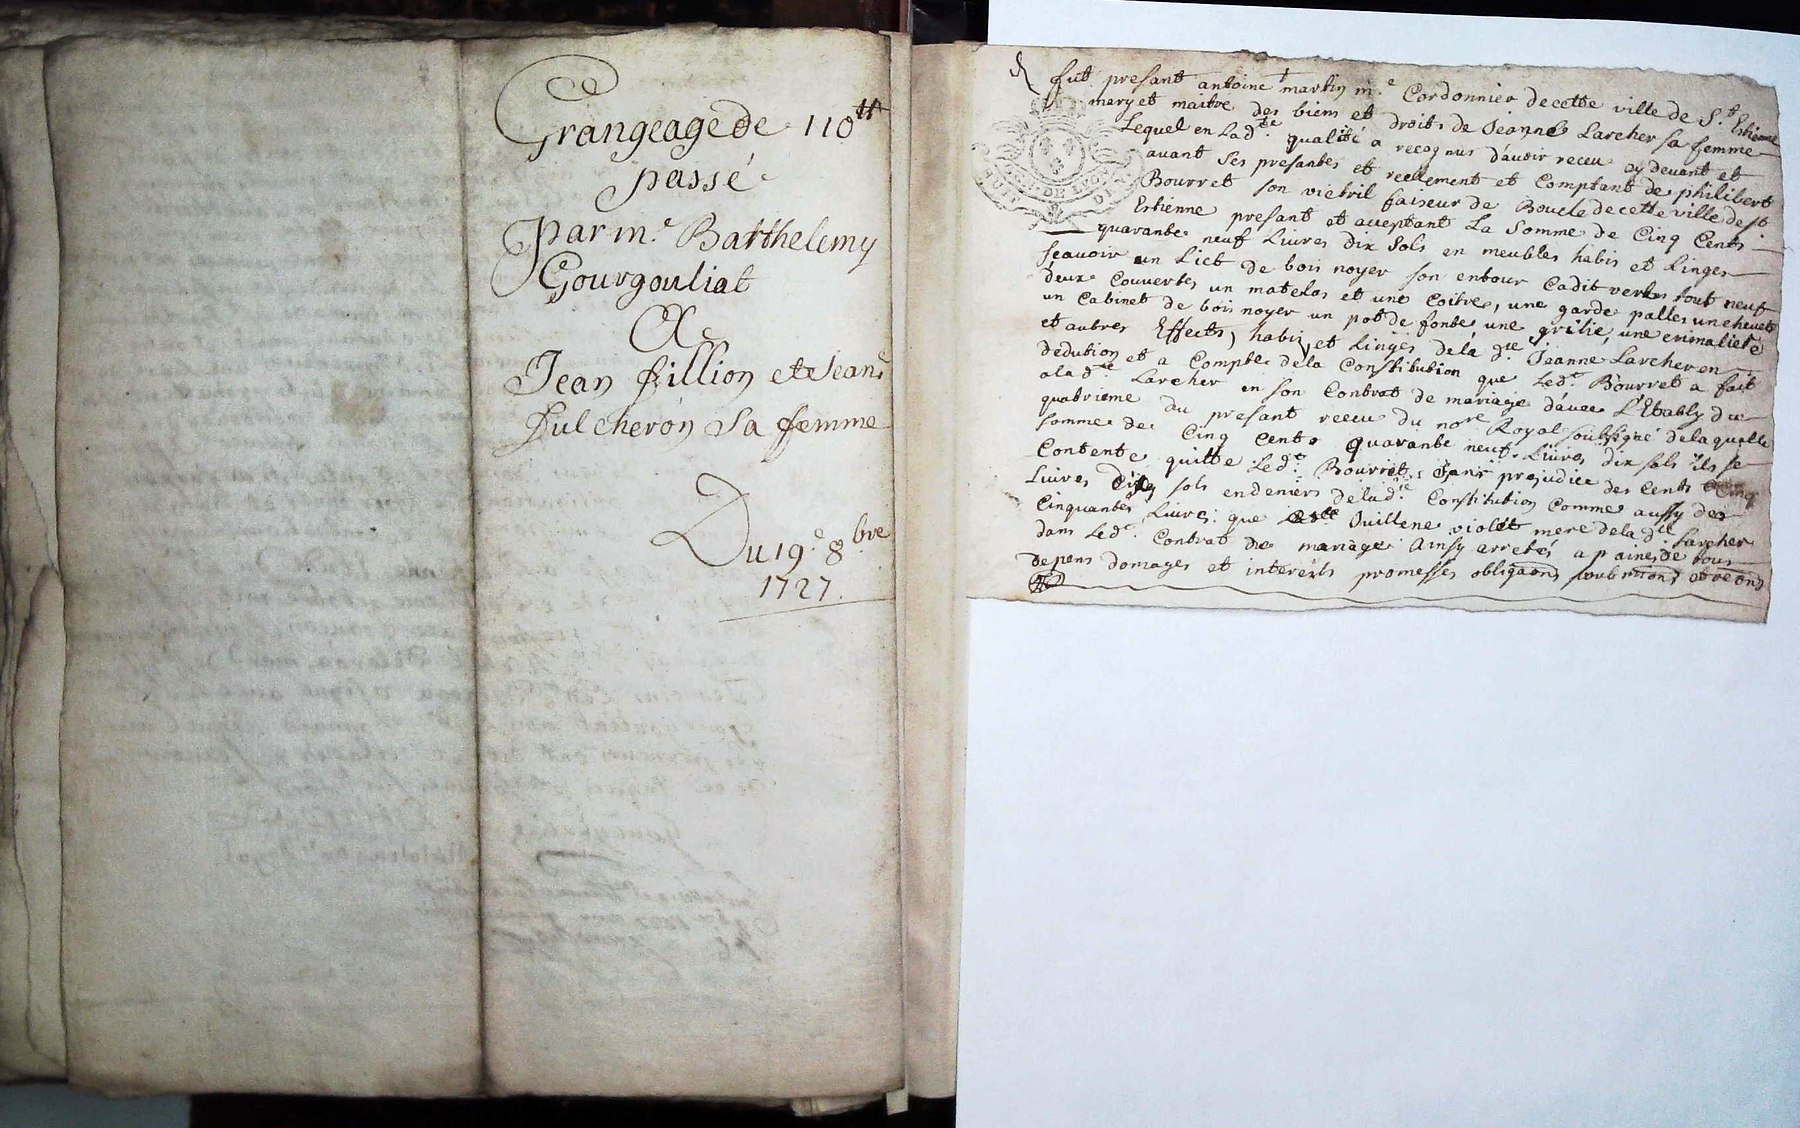 Grangeage de 110tt
passé
Par me Barthelemy
Gourgouliat
A
Jean fillion et Jeane
Dulcheron Sa femme
Du 19e 8bre
1727.
fut presant antoine martin me Cordonnier de cette ville de St Estienne
mary et maitre des biens et droits de Jeanne Larcher sa femme
Lequel en Ladte qualité a recognus d'avoir receu cy devant et
avant Ses presantes et reellement et Comptant de philibert
Bourret son viebril faiseur de Boucle de cette ville de St
Estienne presant et aceptant La Somme de Cinq Cents
quarante neuf Livres dix Sols en meubles habis et Linges
scauoir un Lict de bois noyer son entour Cadit vertes tout neuf
deux Couvertes, un matelas et une Coitre, une garde palles un chevet
un Cabinet de bois noyer un pot de fonte une grilie, une crimaliere
et autres Effects, habis, et Linges de la dte Jeanne Larcher en
dedution et a Compte de la Constitution que Ledt Bourret a fait
a la dte Larcher en son Contrat de mariage d'avec L'Etably du
quatrieme du presant receu du nore Royal soubsigné de laquelle
somme de Cinq Cents quarante neuf Livres dix sols ils se
Contente quitte Ledt Bourret Sans prejudice des Cents Cinq
Livres dix sols en deniers de la dte Constitution Comme aussy des
Cinquantes Livres que Ouillene violet mere de la dte Larcher
dans Ledt Contrat de mariage Ainsy arretés a paines de tous
depens domages et interests promesses obligaons soubmions et reons